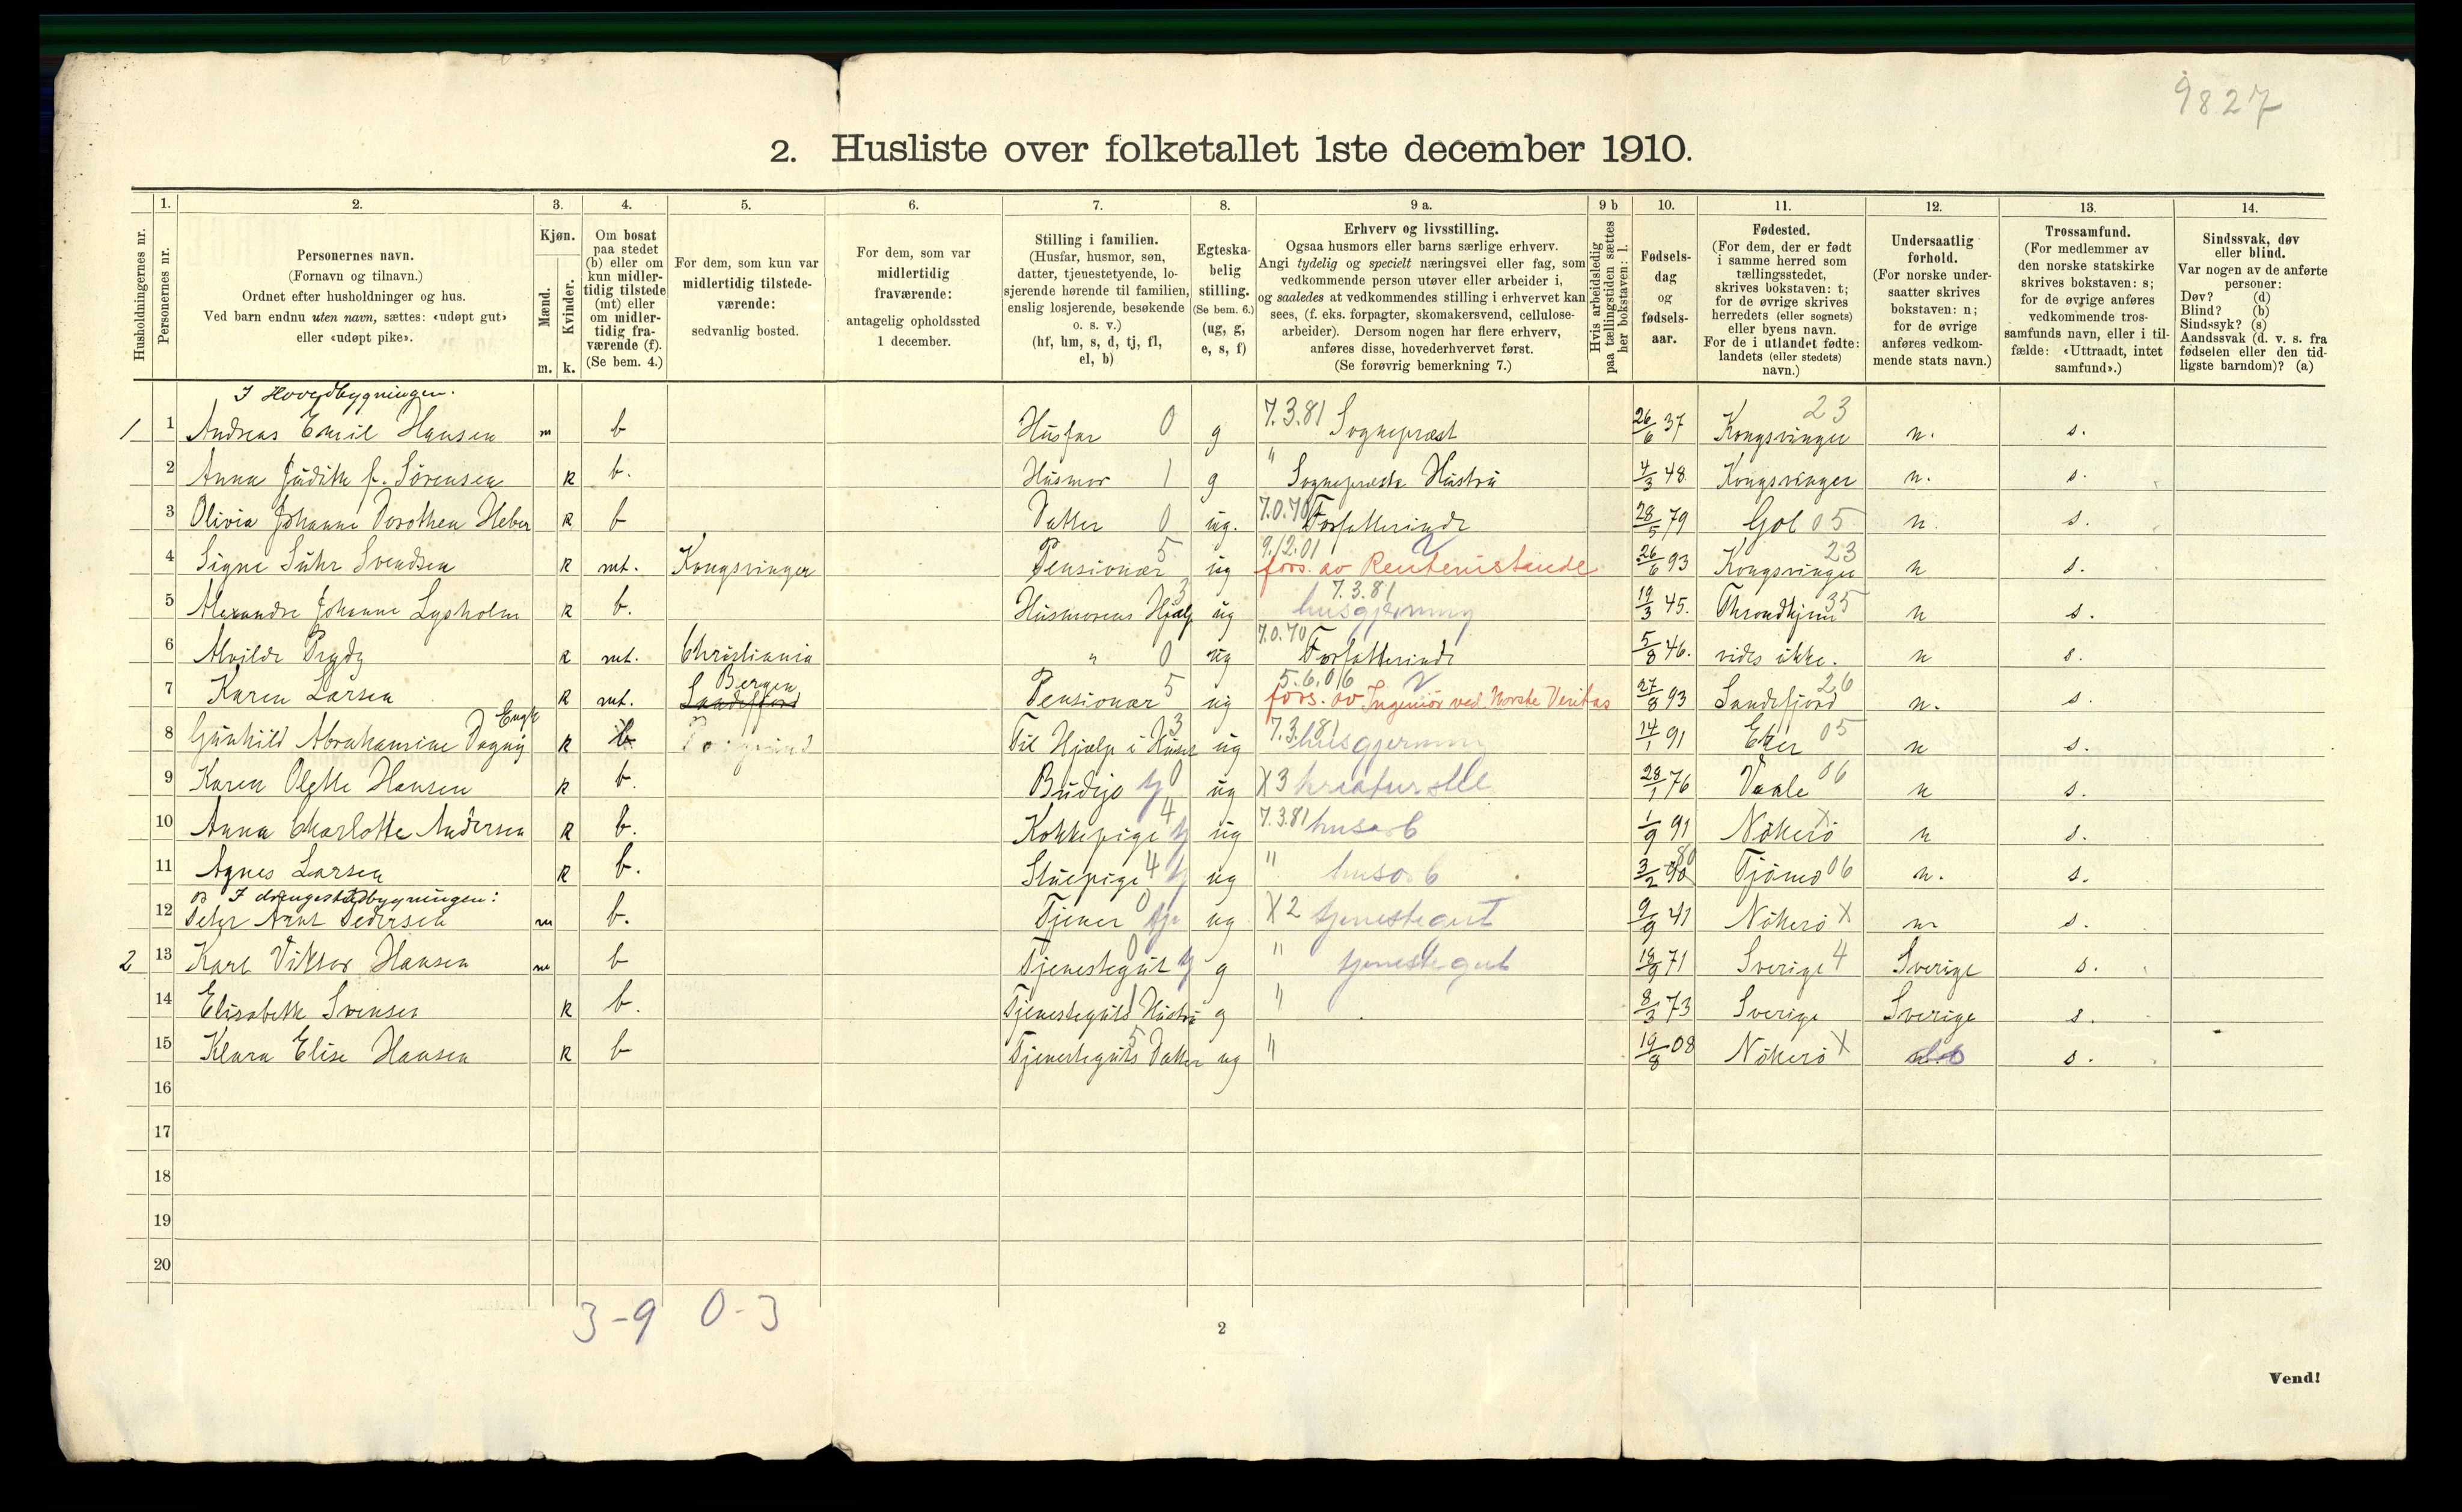 9827
2. Husliste over folketallet 1ste december 1910.
Husholdningernes nr.
1. Personernes nr.
2. Personernes navn.
(Fornavn og tilnavn.)
Ordnet efter husholdninger og hus.
Ved barn endnu uten navn, sættes: «udøpt gut»
eller «udøpt pike».
3. Kjøn.
Mænd. m.
Kvinder. k.
4. Om bosat
paa stedet
(b) eller om
kun midler-
tidig tilstede
(mt) eller
om midler-
tidig fra-
værende (f).
(Se bem. 4.)
5. For dem, som kun var
midlertidig tilstede-
værende:
sedvanlig bosted.
6. For dem, som var
midlertidig
fraværende:
antagelig opholdssted
1 december.
7. Stilling i familien.
(Husfar, husmor, søn,
datter, tjenestetyende, lo-
sjerende hørende til familien,
enslig losjerende, besøkende
o. s. v.)
(hf, hm, s, d, tj, fl,
el, b)
8. Egteska-
belig
stilling.
(Se bem. 6.)
(ug, g,
e, s, f)
9 a. Erhverv og livsstilling.
Ogsaa husmors eller barns særlige erhverv.
Angi tydelig og specielt næringsvei eller fag, som
vedkommende person utøver eller arbeider i,
og saaledes at vedkommendes stilling i erhvervet kan
sees, (f. eks. forpagter, skomakersvend, cellulose-
arbeider). Dersom nogen har flere erhverv,
anføres disse, hovederhvervet først.
(Se forøvrig bemerkning 7.)
9 b Hvis arbeidsledig
paa tællingstiden sættes
her bokstaven: l.
10. Fødsels-
dag
og
fødsels-
aar.
11. Fødested.
(For dem, der er født
i samme herred som
tællingsstedet,
skrives bokstaven: t;
for de øvrige skrives
herredets (eller sognets)
eller byens navn.
For de i utlandet fødte:
landets (eller stedets)
navn.)
12. Undersaatlig
forhold.
(For norske under-
saatter skrives
bokstaven: n;
for de øvrige
anføres vedkom-
mende stats navn.)
13. Trossamfund.
(For medlemmer av
den norske statskirke
skrives bokstaven: s;
for de øvrige anføres
vedkommende tros-
samfunds navn, eller i til-
fælde: «Uttraadt, intet
samfund».)
14. Sindssvak, døv
eller blind.
Var nogen av de anførte
personer:
Døv? (d)
Blind? (b)
Sindssyk? (s)
Aandssvak (d. v. s. fra
fødselen eller den tid-
ligste barndom)? (a)
I Hovedbygningen.
1 1 Andreas Emil Hansen m b Husfar 0 g 7.3.81 Sogneprest 26/6 37 Kongsvinger 23 n. s.
2 Anna Judith f. Sørensen k b. Husmor 1 g " Sogneprests Hustru 4/3 48 Kongsvinger n. s.
3 Olivia Johanne Dorothea Heber k b Datter 0 ug. 7.0.70 Forfatterinde 28/5 79 Gol 05 n. s.
4 Signe Suhr Svendsen k mt. Kongsvinger Pensionær 5 ug 9.12.01 fors. av 26/6 93 Kongsvinger 23 n s.
5 Alexandra Johanne Lysholm k b. Husmorens Hjælp 3 ug 7.3.81 husgjerning 19/3 45. Throndhjem 35 n s.
6 Alvilde Prydz k mt. Christiania " 0 ug 7.0.70 Forfatterinde 5/8 46. vides ikke. n s.
7 Karen Larsen k mt. Bergen Sandefjord Pensionær 5 ug 5.6.016 fors. av Ingeniør ved Norske Veritas 27/8 93 Sandefjord 26 n. s.
8 Gunhild Abrahamine Dagny Engh k b Til Hjælp i Huset 3 ug 7.3.81 husgjerning 14/1 91 Eker 05 n s.
9 Karen Olette Hansen k b. Budeje tj 0 ug X3 kreaturstell 28/1 76 Vaale 06 n s.
10 Anna Charlotte Andersen k b. Kokkepige 4 tj ug 7.3.81 husarb 1/9 91 Nøterø X n s.
11 Agnes Larsen k b. Stuepige 4 tj ug " husarb 3/2 Tjømø 06 n. s.
B I drengestubygningen:
12 Peter Arnt Pedersen m b. Tjener 0 tj ug X2 tjenestegut 9/9 41 Nøterø X n s.
2 13 Karl Viktor Hansen m b Tjenestegut 0 tj g " tjenestegut 19/9 71 Sverige 4 Sverige s.
14 Elisabeth Svensen k b. Tjenesteguts Hustru 1 g " 8/3 73 Sverige Sverige s.
15 Klara Elise Hansen k b Tjenesteguts Datter 5 ug " 19/8 08 Nøterø X s.
16
17
18
19
20
3-9 0-3
2
Vend!